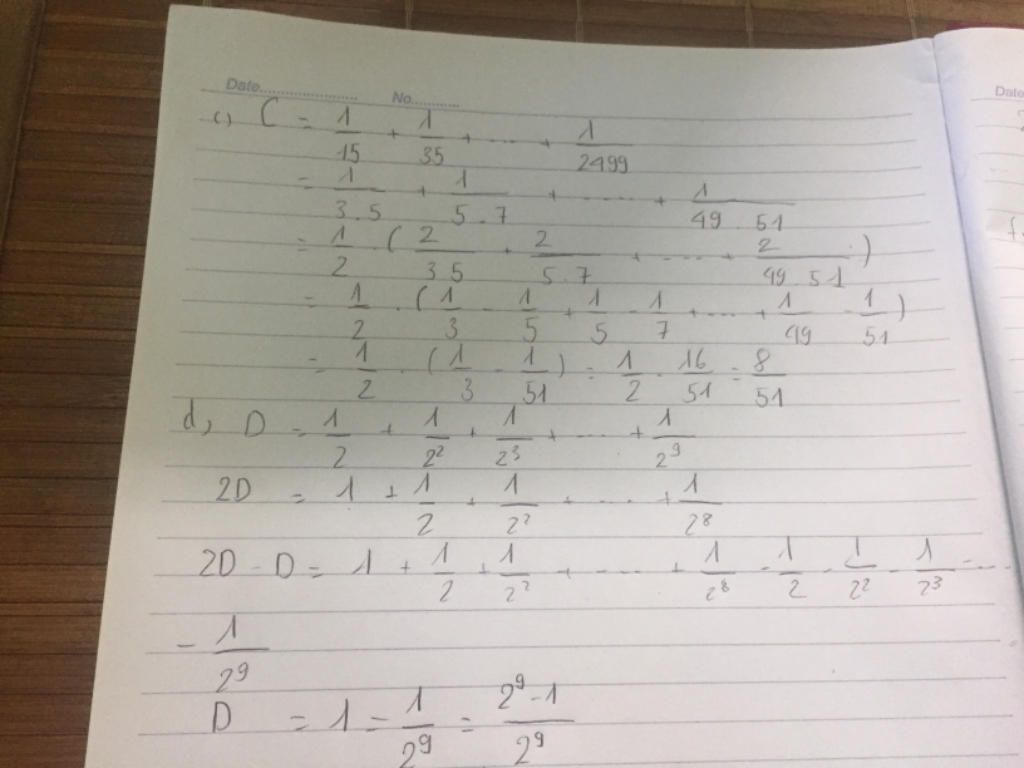 Date.................... No...........
c, C = 1/15 + 1/35 + ... + 1/2499
= 1/3.5 + 1/5.7 + ... + 1/49.51
= 1/2 . ( 2/3.5 + 2/5.7 + ... + 2/49.51 )
= 1/2 . ( 1/3 - 1/5 + 1/5 - 1/7 + ... + 1/49 - 1/51 )
= 1/2 . ( 1/3 - 1/51 ) = 1/2 . 16/51 = 8/51
d, D = 1/2 + 1/2² + 1/2³ + ... + 1/2⁹
2D = 1 + 1/2 + 1/2² + ... + 1/2⁸
2D - D = 1 + 1/2 + 1/2² + ... + 1/2⁸ - 1/2 - 1/2² - 1/2³ - ...
- 1/2⁹
D = 1 - 1/2⁹ = (2⁹ - 1)/2⁹
Date